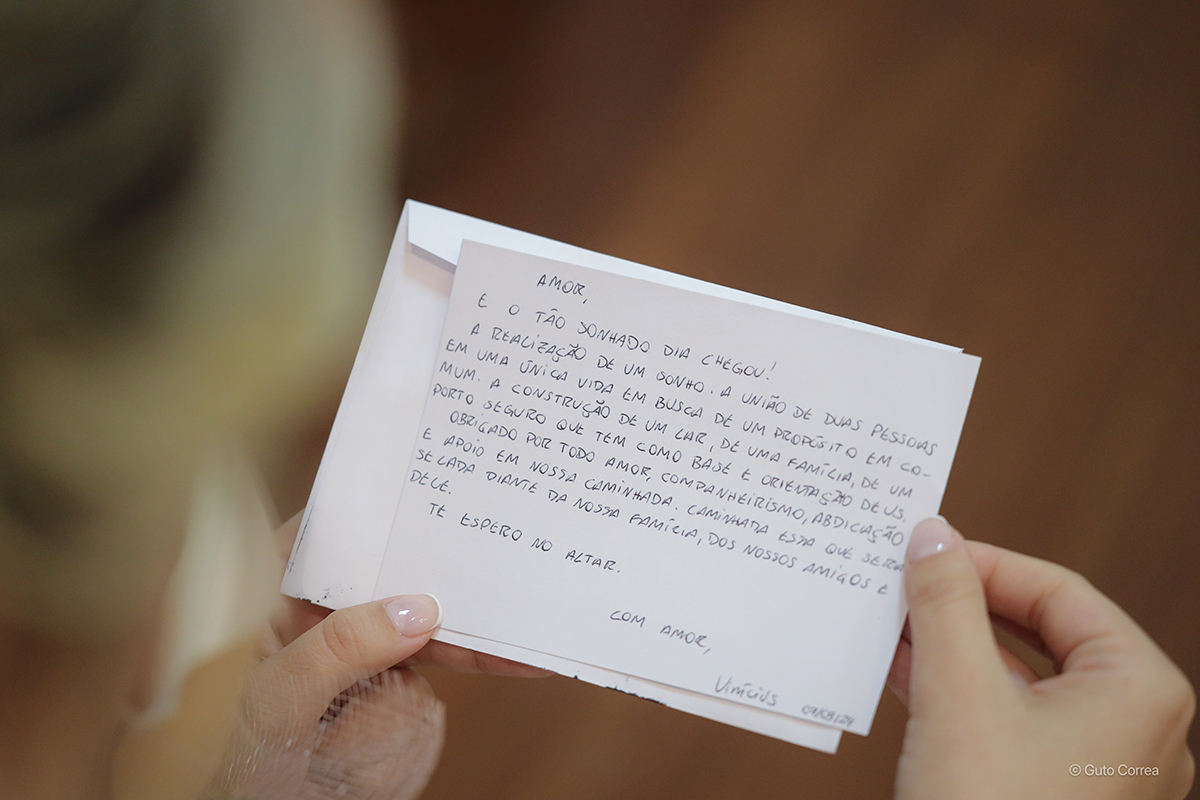 AMOR,
E O TÃO SONHADO DIA CHEGOU!
A REALIZAÇÃO DE UM SONHO. A UNIÃO DE DUAS PESSOAS
EM UMA ÚNICA VIDA EM BUSCA DE UM PROPÓSITO EM CO-
MUM. A CONSTRUÇÃO DE UM LAR, DE UMA FAMÍLIA, DE UM
PORTO SEGURO QUE TEM COMO BASE E ORIENTAÇÃO DEUS.
OBRIGADO POR TODO AMOR, COMPANHEIRISMO, ABDICAÇÃO
E APOIO EM NOSSA CAMINHADA. CAMINHADA ESSA QUE SERÁ
SELADA DIANTE DA NOSSA FAMÍLIA, DOS NOSSOS AMIGOS E
DELE.
TE ESPERO NO ALTAR.
COM AMOR,
Vinícius
© Guto Correa